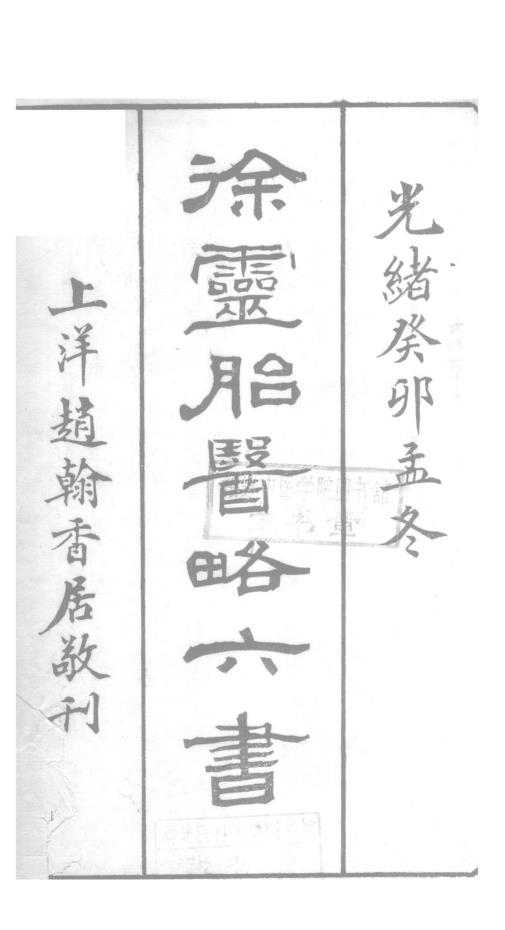 光緒癸卯孟冬
徐靈胎醫略六書
上洋趙翰香居敬刊
中医学院图书馆